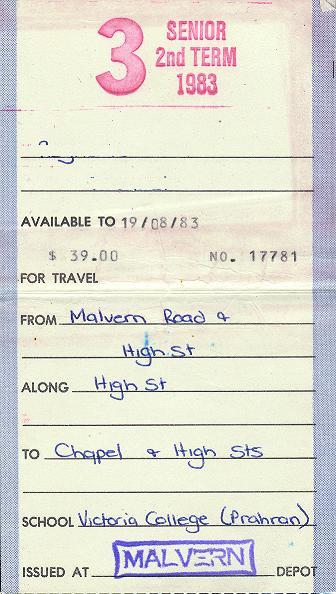 3 SENIOR
2nd TERM
1983
AVAILABLE TO 19/08/83
$ 39.00 NO. 17781
FOR TRAVEL
FROM Malvern Road &
High St
ALONG High St
TO Chapel & High Sts
SCHOOL Victoria College (Prahran)
ISSUED AT MALVERN DEPOT